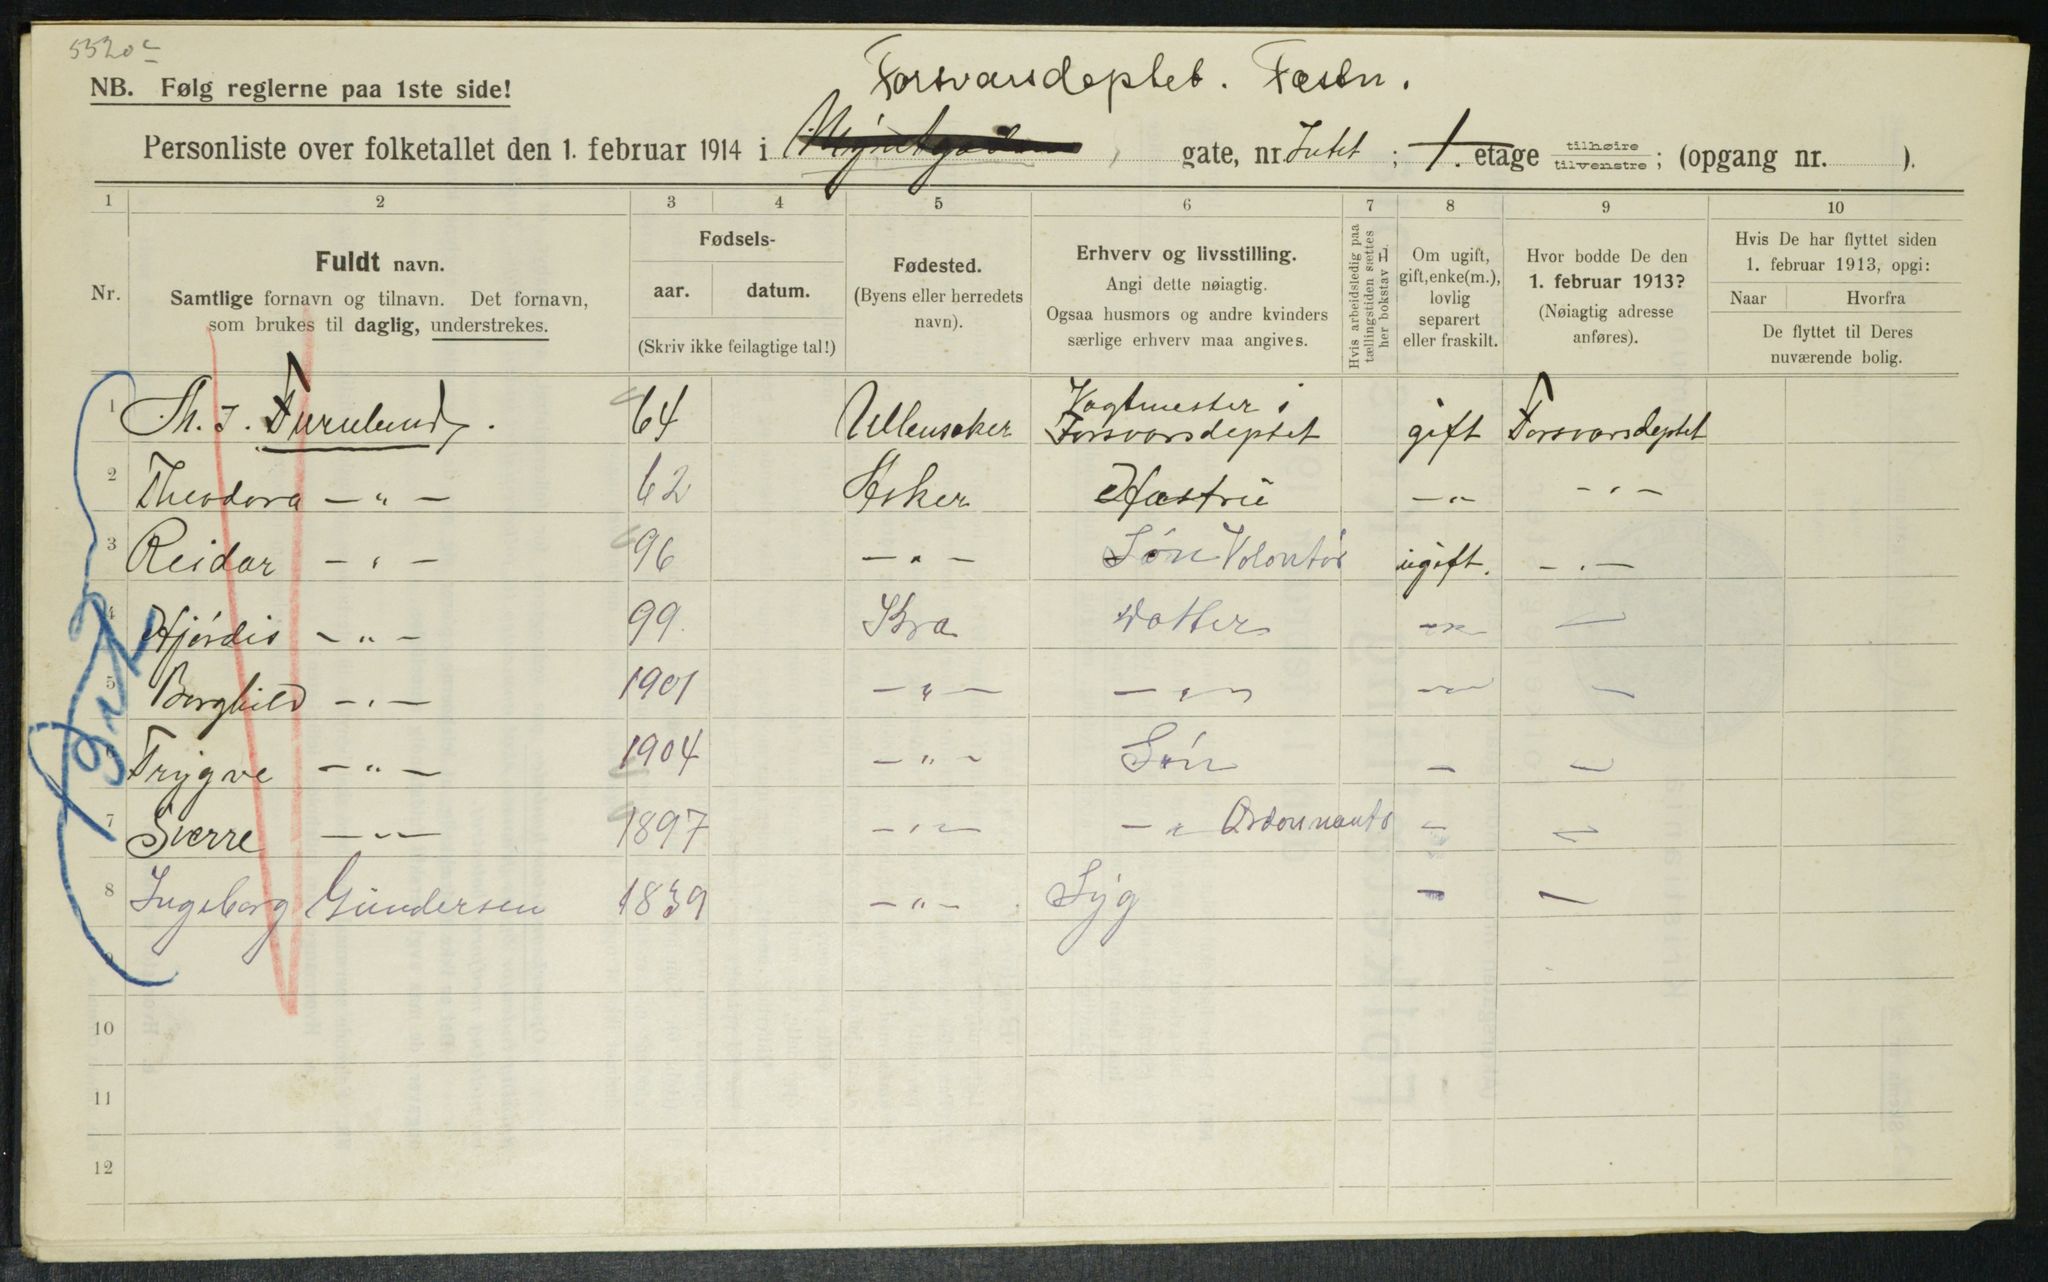 5520c
NB. Følg reglerne paa 1ste side!
Forsvarsdeptet. Fæstn.
Personliste over folketallet den 1. februar 1914 i Myntgaden gate, nr. Intet ; 1. etage tilhøire tilvenstre ; (opgang nr. ).
1 2 3 4 5 6 7 8 9 10
Nr.
Fuldt navn.
Samtlige fornavn og tilnavn. Det fornavn,
som brukes til daglig, understrekes.
Fødsels-
aar. datum.
(Skriv ikke feilagtige tal!)
Fødested.
(Byens eller herredets
navn).
Erhverv og livsstilling.
Angi dette nøiagtig.
Ogsaa husmors og andre kvinders
særlige erhverv maa angives.
Hvis arbeidsledig paa
tællingstiden sættes
her bokstav H.
Om ugift,
gift, enke(m.),
lovlig
separert
eller fraskilt.
Hvor bodde De den
1. februar 1913?
(Nøiagtig adresse
anføres).
Hvis De har flyttet siden
1. februar 1913, opgi:
Naar Hvorfra
De flyttet til Deres
nuværende bolig.
1 Th. J. Furulund. 64 Ullensaker Vagtmester i Forsvarsdeptet gift Forsvarsdeptet
2 Theodora — " — 62 Asker Hustru — " — " —
3 Reidar — " — 96 — " — Søn Volontør ugift. — " —
4 Hjørdis — " — 99 Kra Datter — " — —
5 Borghild — " — 1901 — " — — " — — " — —
6 Trygve — " — 1904 — " — Søn — —
7 Sverre — " — 1897 — " — — " Ordonnants — —
8 Ingeborg Gundersen 1839 — " — Syg — —
9
10
11
12